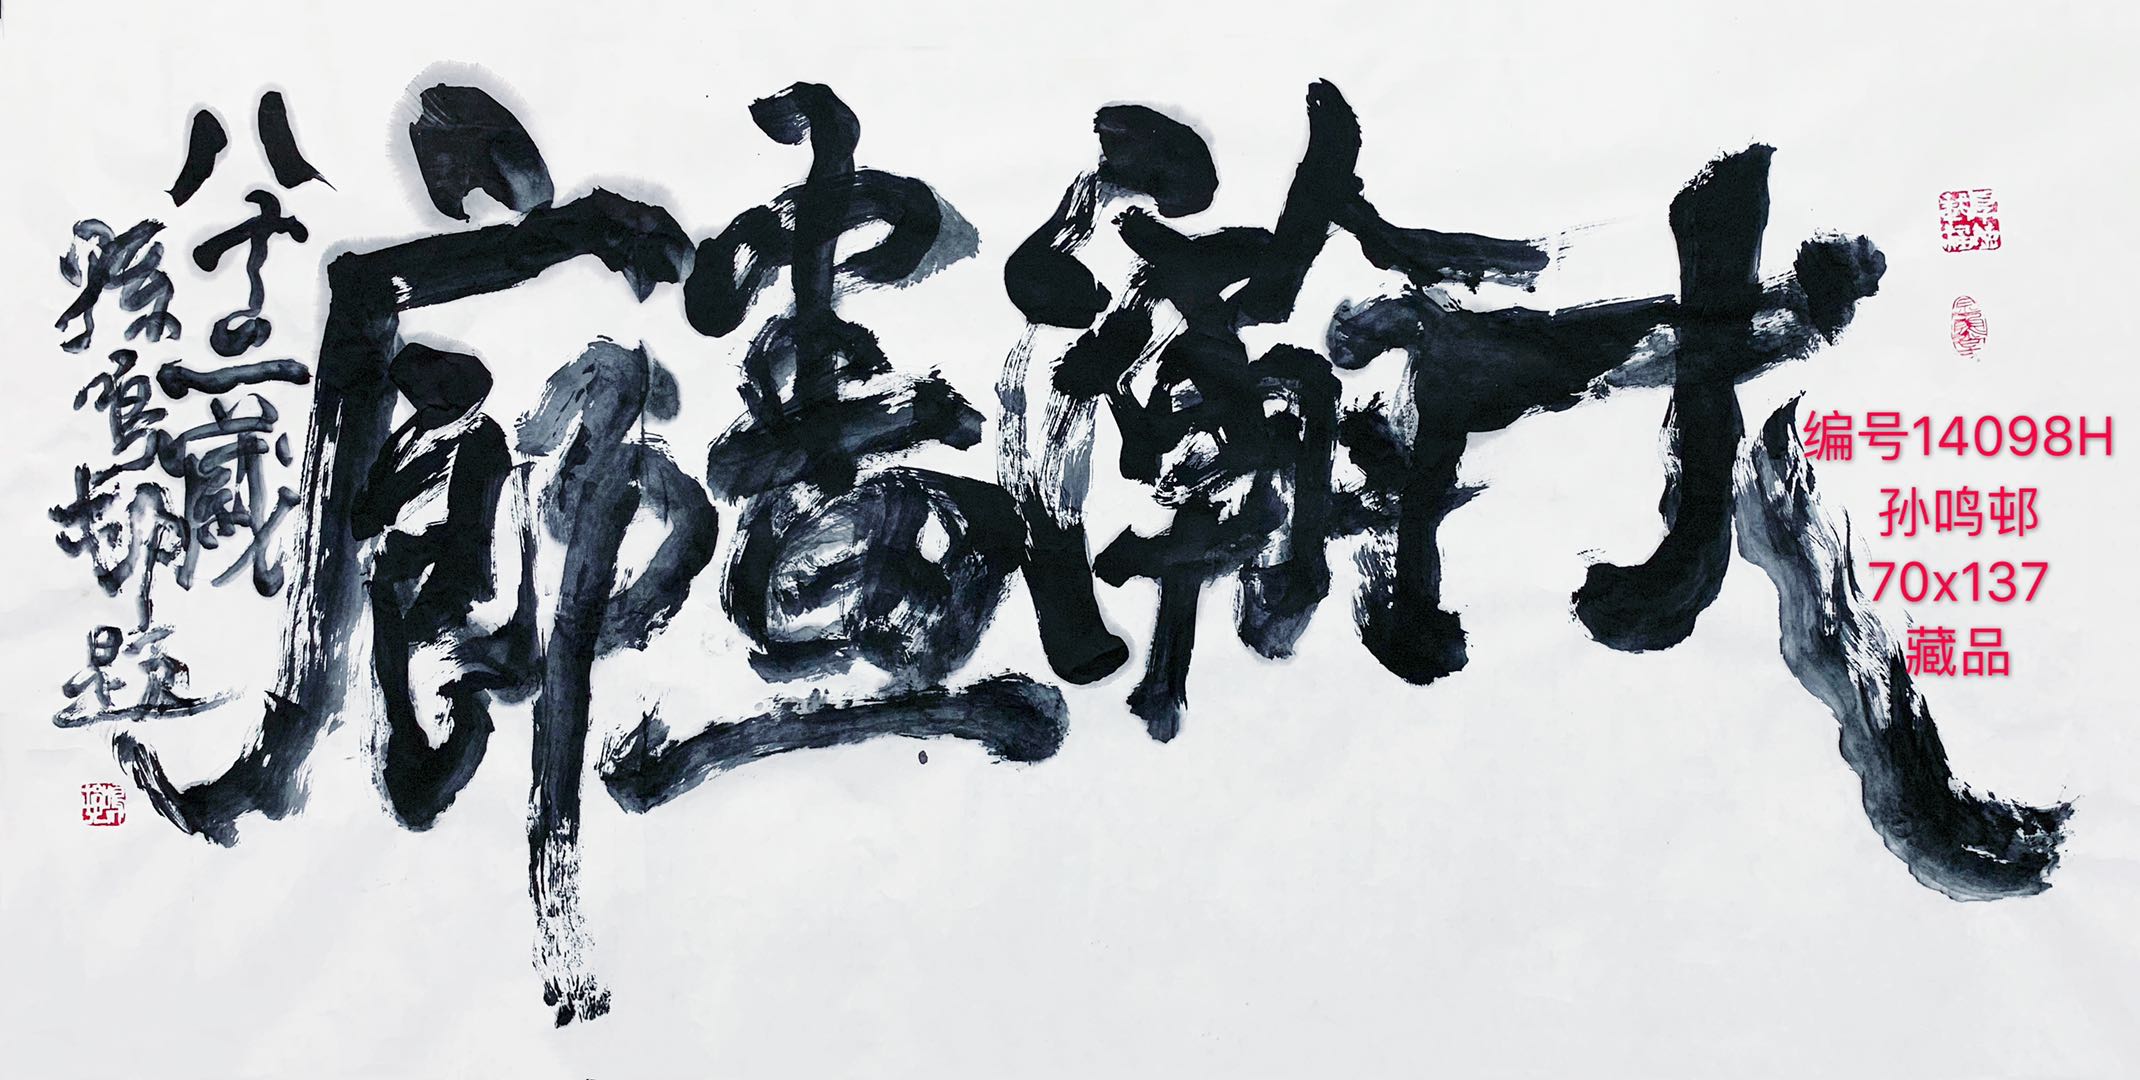 大瀚畫廊
八十二歲
孫鳴邨題
编号14098H
孙鸣邨
70x137
藏品